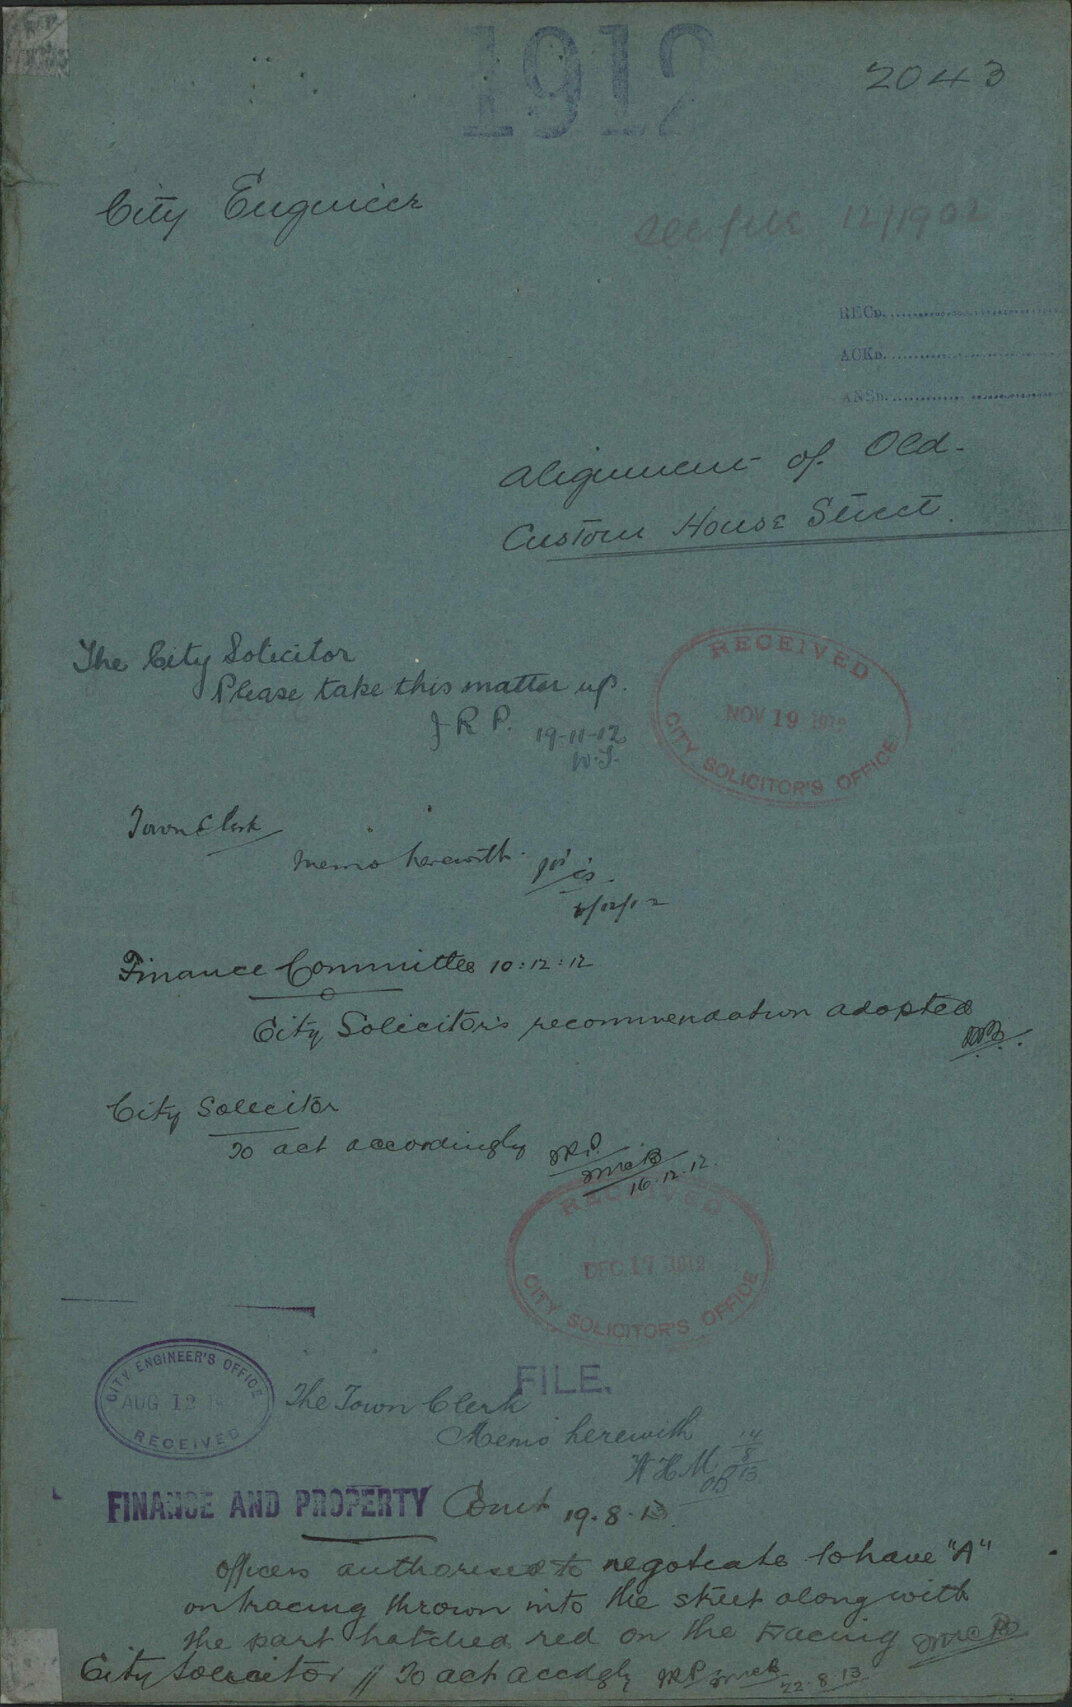 1912
2043
City Engineer
See file 12/1902
RECD.
ACKD.
ANSD.
Alignment of Old
Custom House Street
The City Solicitor
Please take this matter up.
J R P. 19-11-12
W.J.
RECEIVED
NOV 19 1912
CITY SOLICITOR'S OFFICE
Town Clerk
Memo herewith.
/12/12
Finance Committee 10:12:12
City Solicitor's recommendation adopted
City Solicitor
To act accordingly JRP.
McB
16.12.12.
RECEIVED
DEC 17 1912
CITY SOLICITOR'S OFFICE
CITY ENGINEER'S OFFICE
AUG 12
RECEIVED
FILE.
The Town Clerk
Memo herewith
A H M 14/8/13
FINANCE AND PROPERTY Comt 19.8.13.
Officers authorised to negotiate to have "A"
on tracing thrown into the street along with
the part hatched red on the tracing McB
City Solicitor // To act accdgly JRP McB 22.8.13.